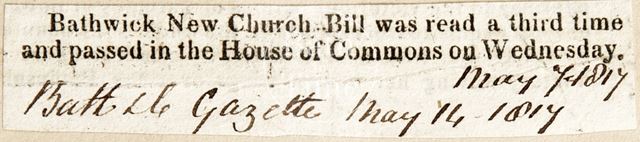 Bathwick New Church Bill was read a third time
and passed in the House of Commons on Wednesday.
May 7-1817
Bath &c Gazette May 14-1817